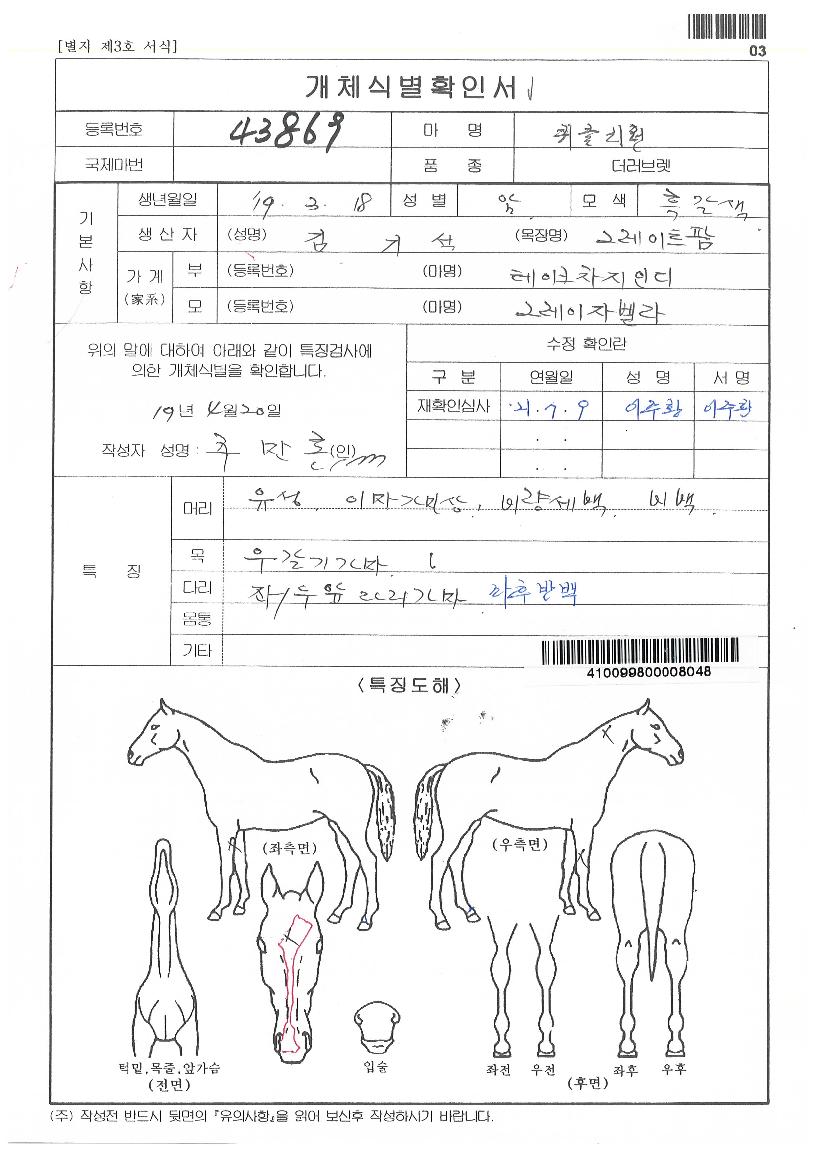 [별지 제3호 서식]
03
개체식별확인서
등록번호 43869 마 명
국제마번 품 종 더러브렛
기본사항
생년월일 '19. 3. 18 성 별 암 모 색 흑갈색
생 산 자 (성명) 김 기 석 (목장명) 그레이트팜
가 계 (家系) 부 (등록번호) (마명) 테이크차지인디
모 (등록번호) (마명) 그레이자벨라
위의 말에 대하여 아래와 같이 특징검사에
의한 개체식별을 확인합니다.
19년 4월20일
작성자 성명 : 주 만 (인)
수정 확인란
구 분 연월일 성 명 서 명
재확인심사 '21. 7. 9 이주황 이주황
. .
. .
특 징
머리 유성, 이마가마상, 비량세백, 비백.
목 우갈기가마
다리 좌/우앞다리가마 좌후반백
몸통
기타
410099800008048
<특징도해>
(좌측면) (우측면)
턱밑,목줄,앞가슴
(전면)
입술
좌전 우전 좌후 우후
(후면)
(주) 작성전 반드시 뒷면의 『유의사항』을 읽어 보신후 작성하시기 바랍니다.